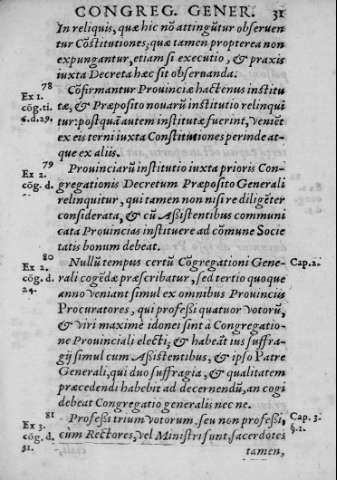 CONGREG. GENER. 31
In reliquis, quæ hic nō attingūtur obseruen
tur Cōstitutiones; quæ tamen propterea non
expungantur, etiam si executio, & praxis
iuxta Decreta hæc sit obseruanda.
78
Ex 1.
cōg. ti.
6. d. 29.
Cōfirmantur Prouinciæ hactenus institu
tæ, & Præposito nouarū institutio relinqui
tur: postquā autem institutæ fuerint, veniēt
ex eis terni iuxta Constitutiones perinde at-
que ex aliis.
79
Ex 2.
cōg. d.
Prouinciarū institutio iuxta prioris Con-
gregationis Decretum Præposito Generali
relinquitur, qui tamen non nisi re diligēter
considerata, & cū Aßistentibus communi
cata Prouincias instituere ad cōmune Socie
tatis bonum debeat.
80
Ex 2.
cōg. d.
24.
Nullū tempus certū Cōgregationi Gene- Cap. 2.
rali cogēdæ præscribatur, sed tertio quoque
anno veniant simul ex omnibus Prouinciis
Procuratores, qui profeßi quatuor votorū,
& viri maximè idonei sint à Congregatio-
ne Prouinciali electi, & habeāt ius suffra-
gij simul cum Aßistentibus, & ipso Patre
Generali, qui duo suffragia, & qualitatem
præcedendi habebit ad decernendū, an cogi
debeat Congregatio generalis nec ne.
81
Ex 3.
cōg. d.
31.
Profeßi trium votorum, seu non profeßi, Cap. 3.
cùm Rectores, vel Ministri sunt, sacerdotes §. 2.
tamen,